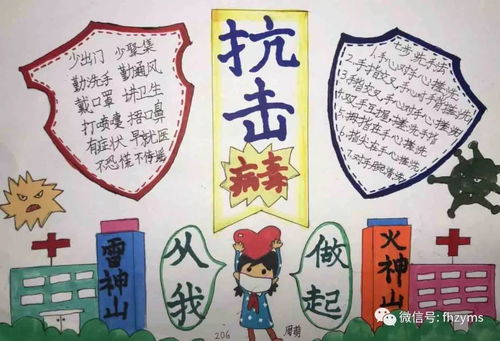 抗击
病毒
少出门 少聚集
勤洗手 勤通风
戴口罩 讲卫生
打喷嚏 捂口鼻
有症状 早就医
不恐慌 不传谣
七步洗手法
1.手心对手心搓洗
2.手指交叉,手心对手背搓洗
3.手指交叉,手心对手心搓洗
4.双手互握搓洗手指
5.拇指在手心搓洗
6.指尖在手心搓洗
7.对手腕清洗
雷神山
从我
做起
火神山
206
周萌
微信号: fhzyms